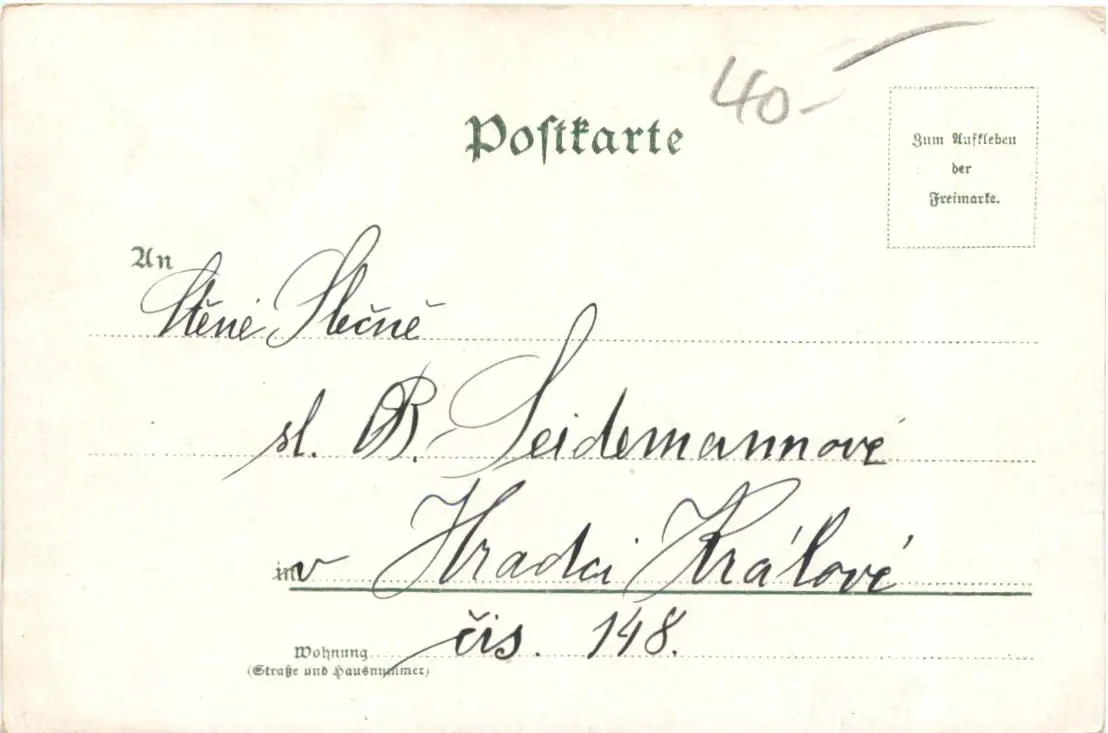 40-
Postkarte
Zum Aufkleben
der
Freimarke.
An
Ctěné Slečně
sl. B. Seidemannové
in v Hradci Králové
čis. 148.
Wohnung
(Straße und Hausnummer)